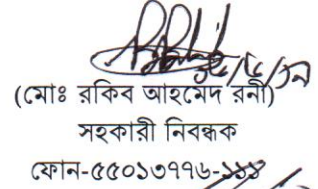 (মোঃ রকিব আহমেদ রনী)
সহকারী নিবন্ধক
ফোন-৫৫০১৩৭৭৬-১১১